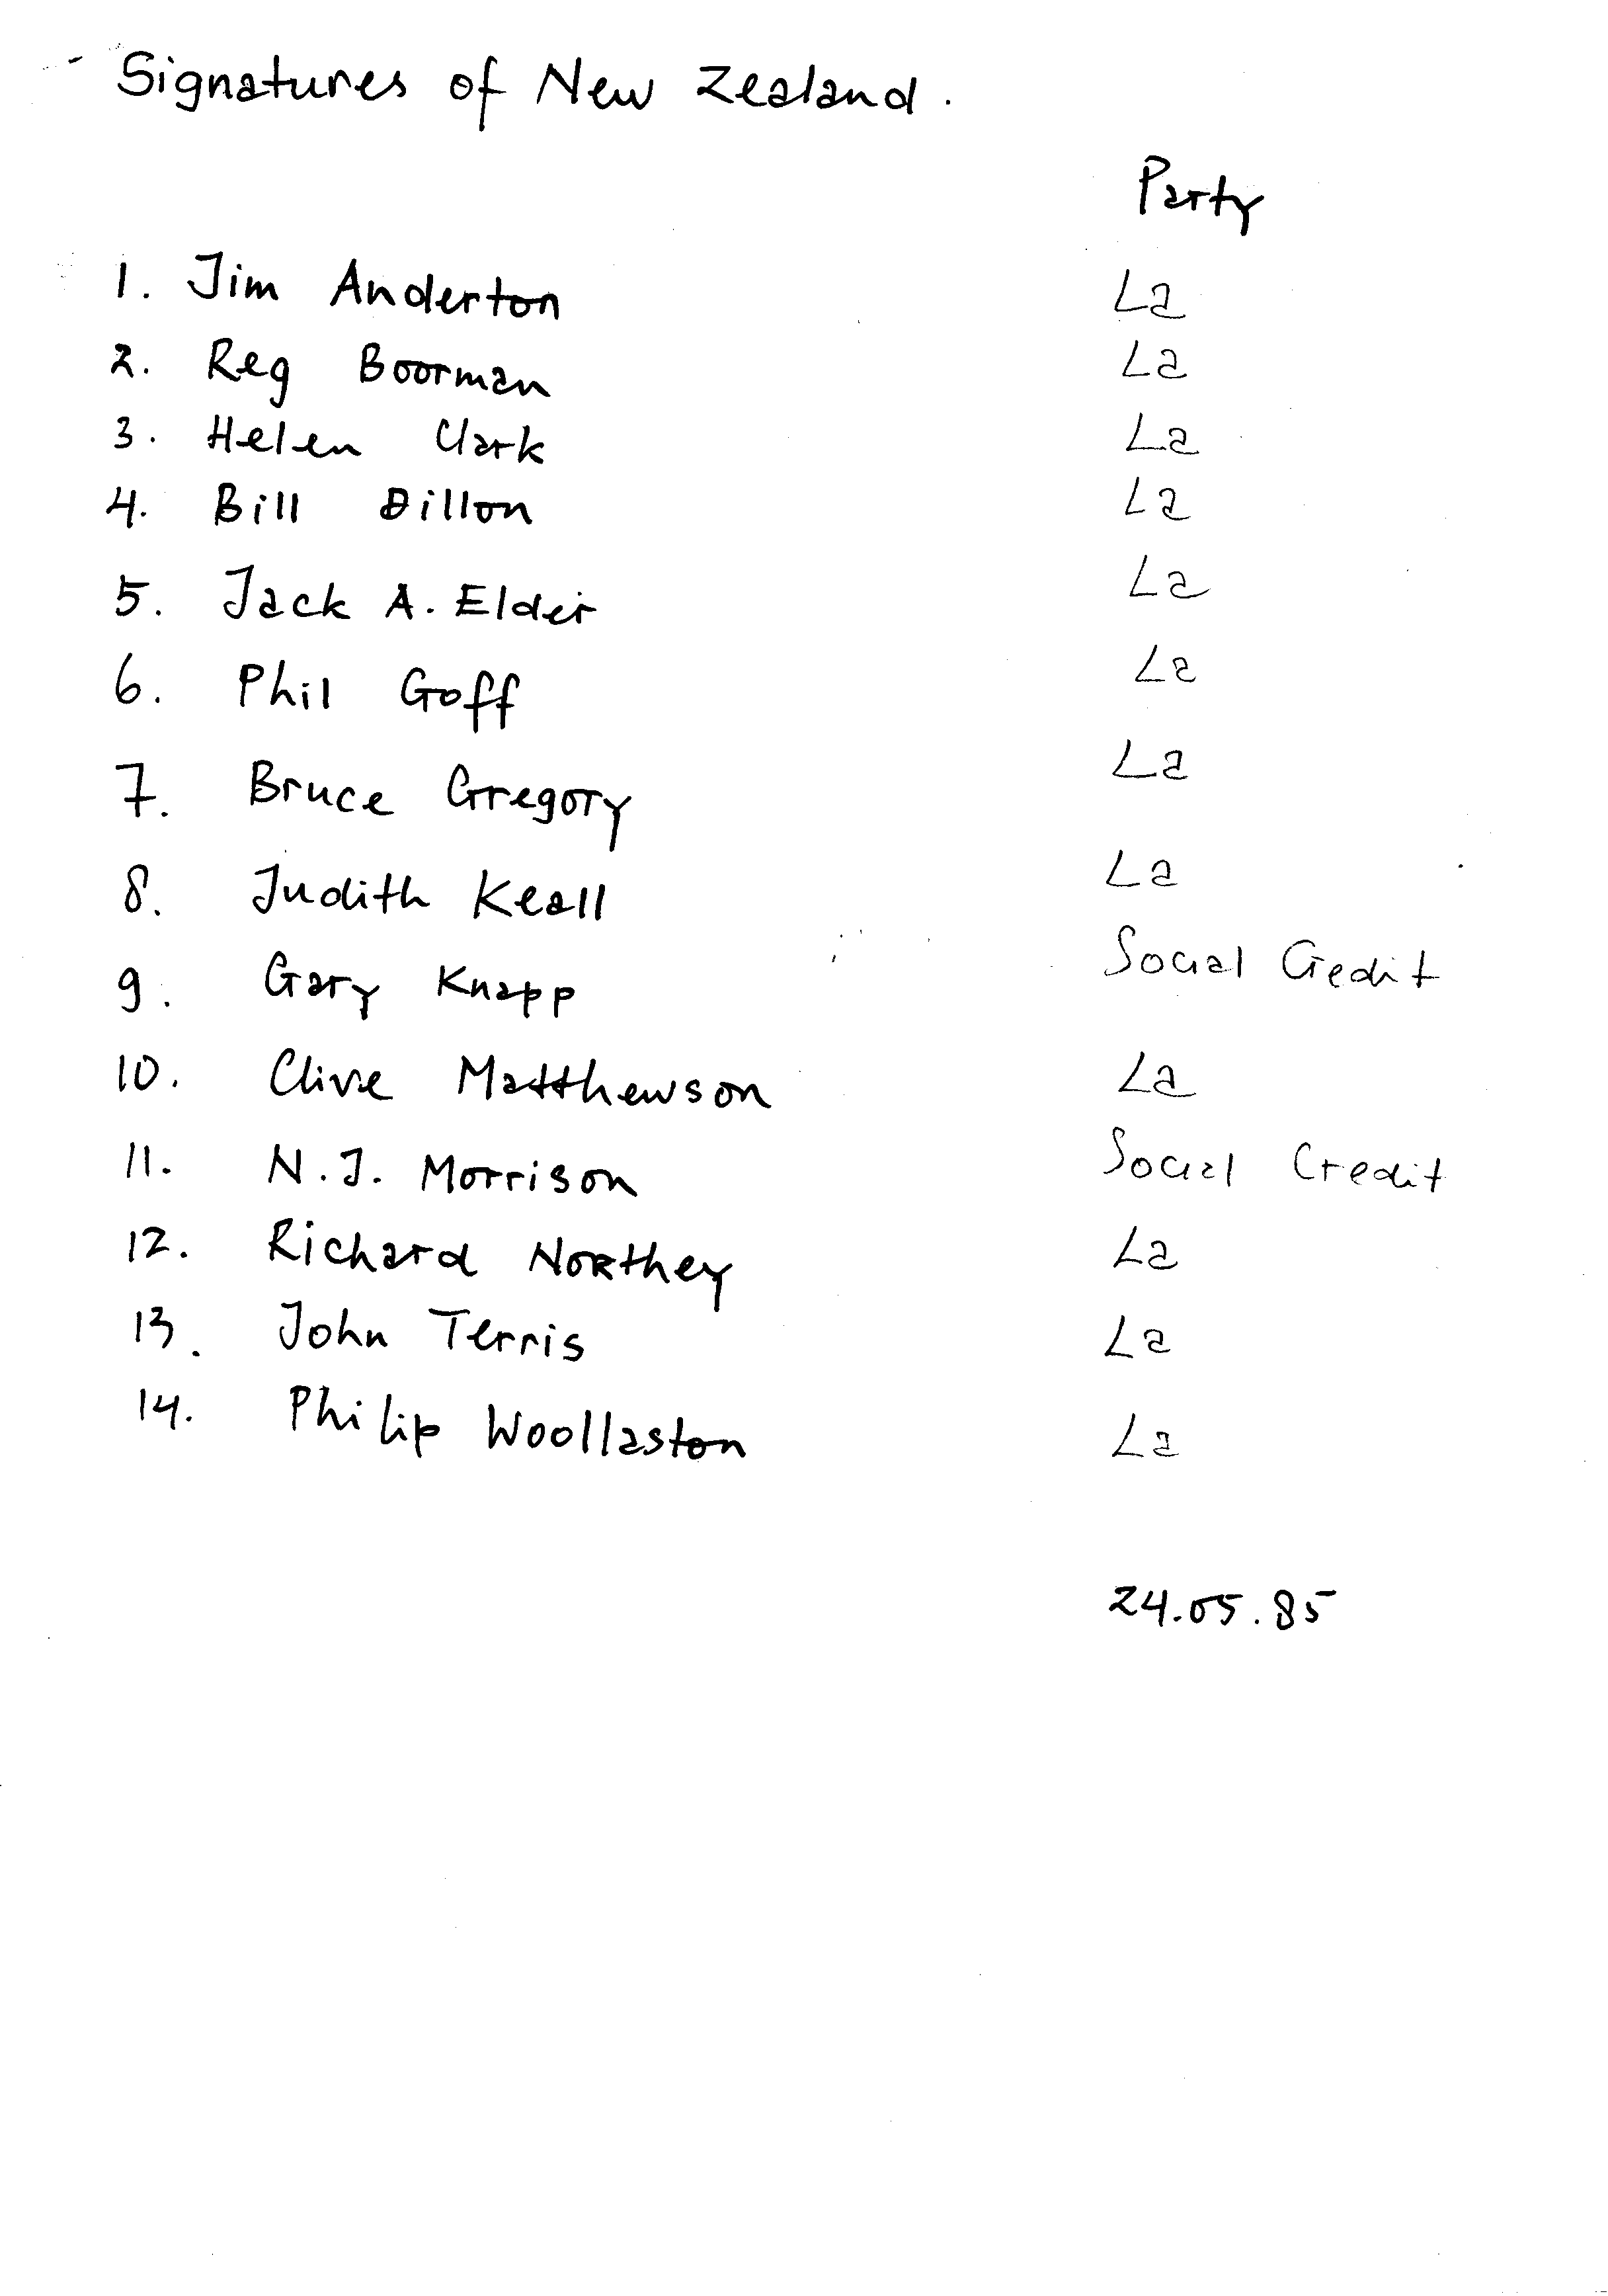 Signatures of New Zealand.
Party
1. Jim Anderton La
2. Reg Boorman La
3. Helen Clark La
4. Bill Dillon La
5. Jack A. Elder La
6. Phil Goff La
7. Bruce Gregory La
8. Judith Keall La
9. Gary Knapp Social Credit
10. Clive Matthewson La
11. N.J. Morrison Social Credit
12. Richard Northey La
13. John Terris La
14. Philip Woollaston La
24.05.85